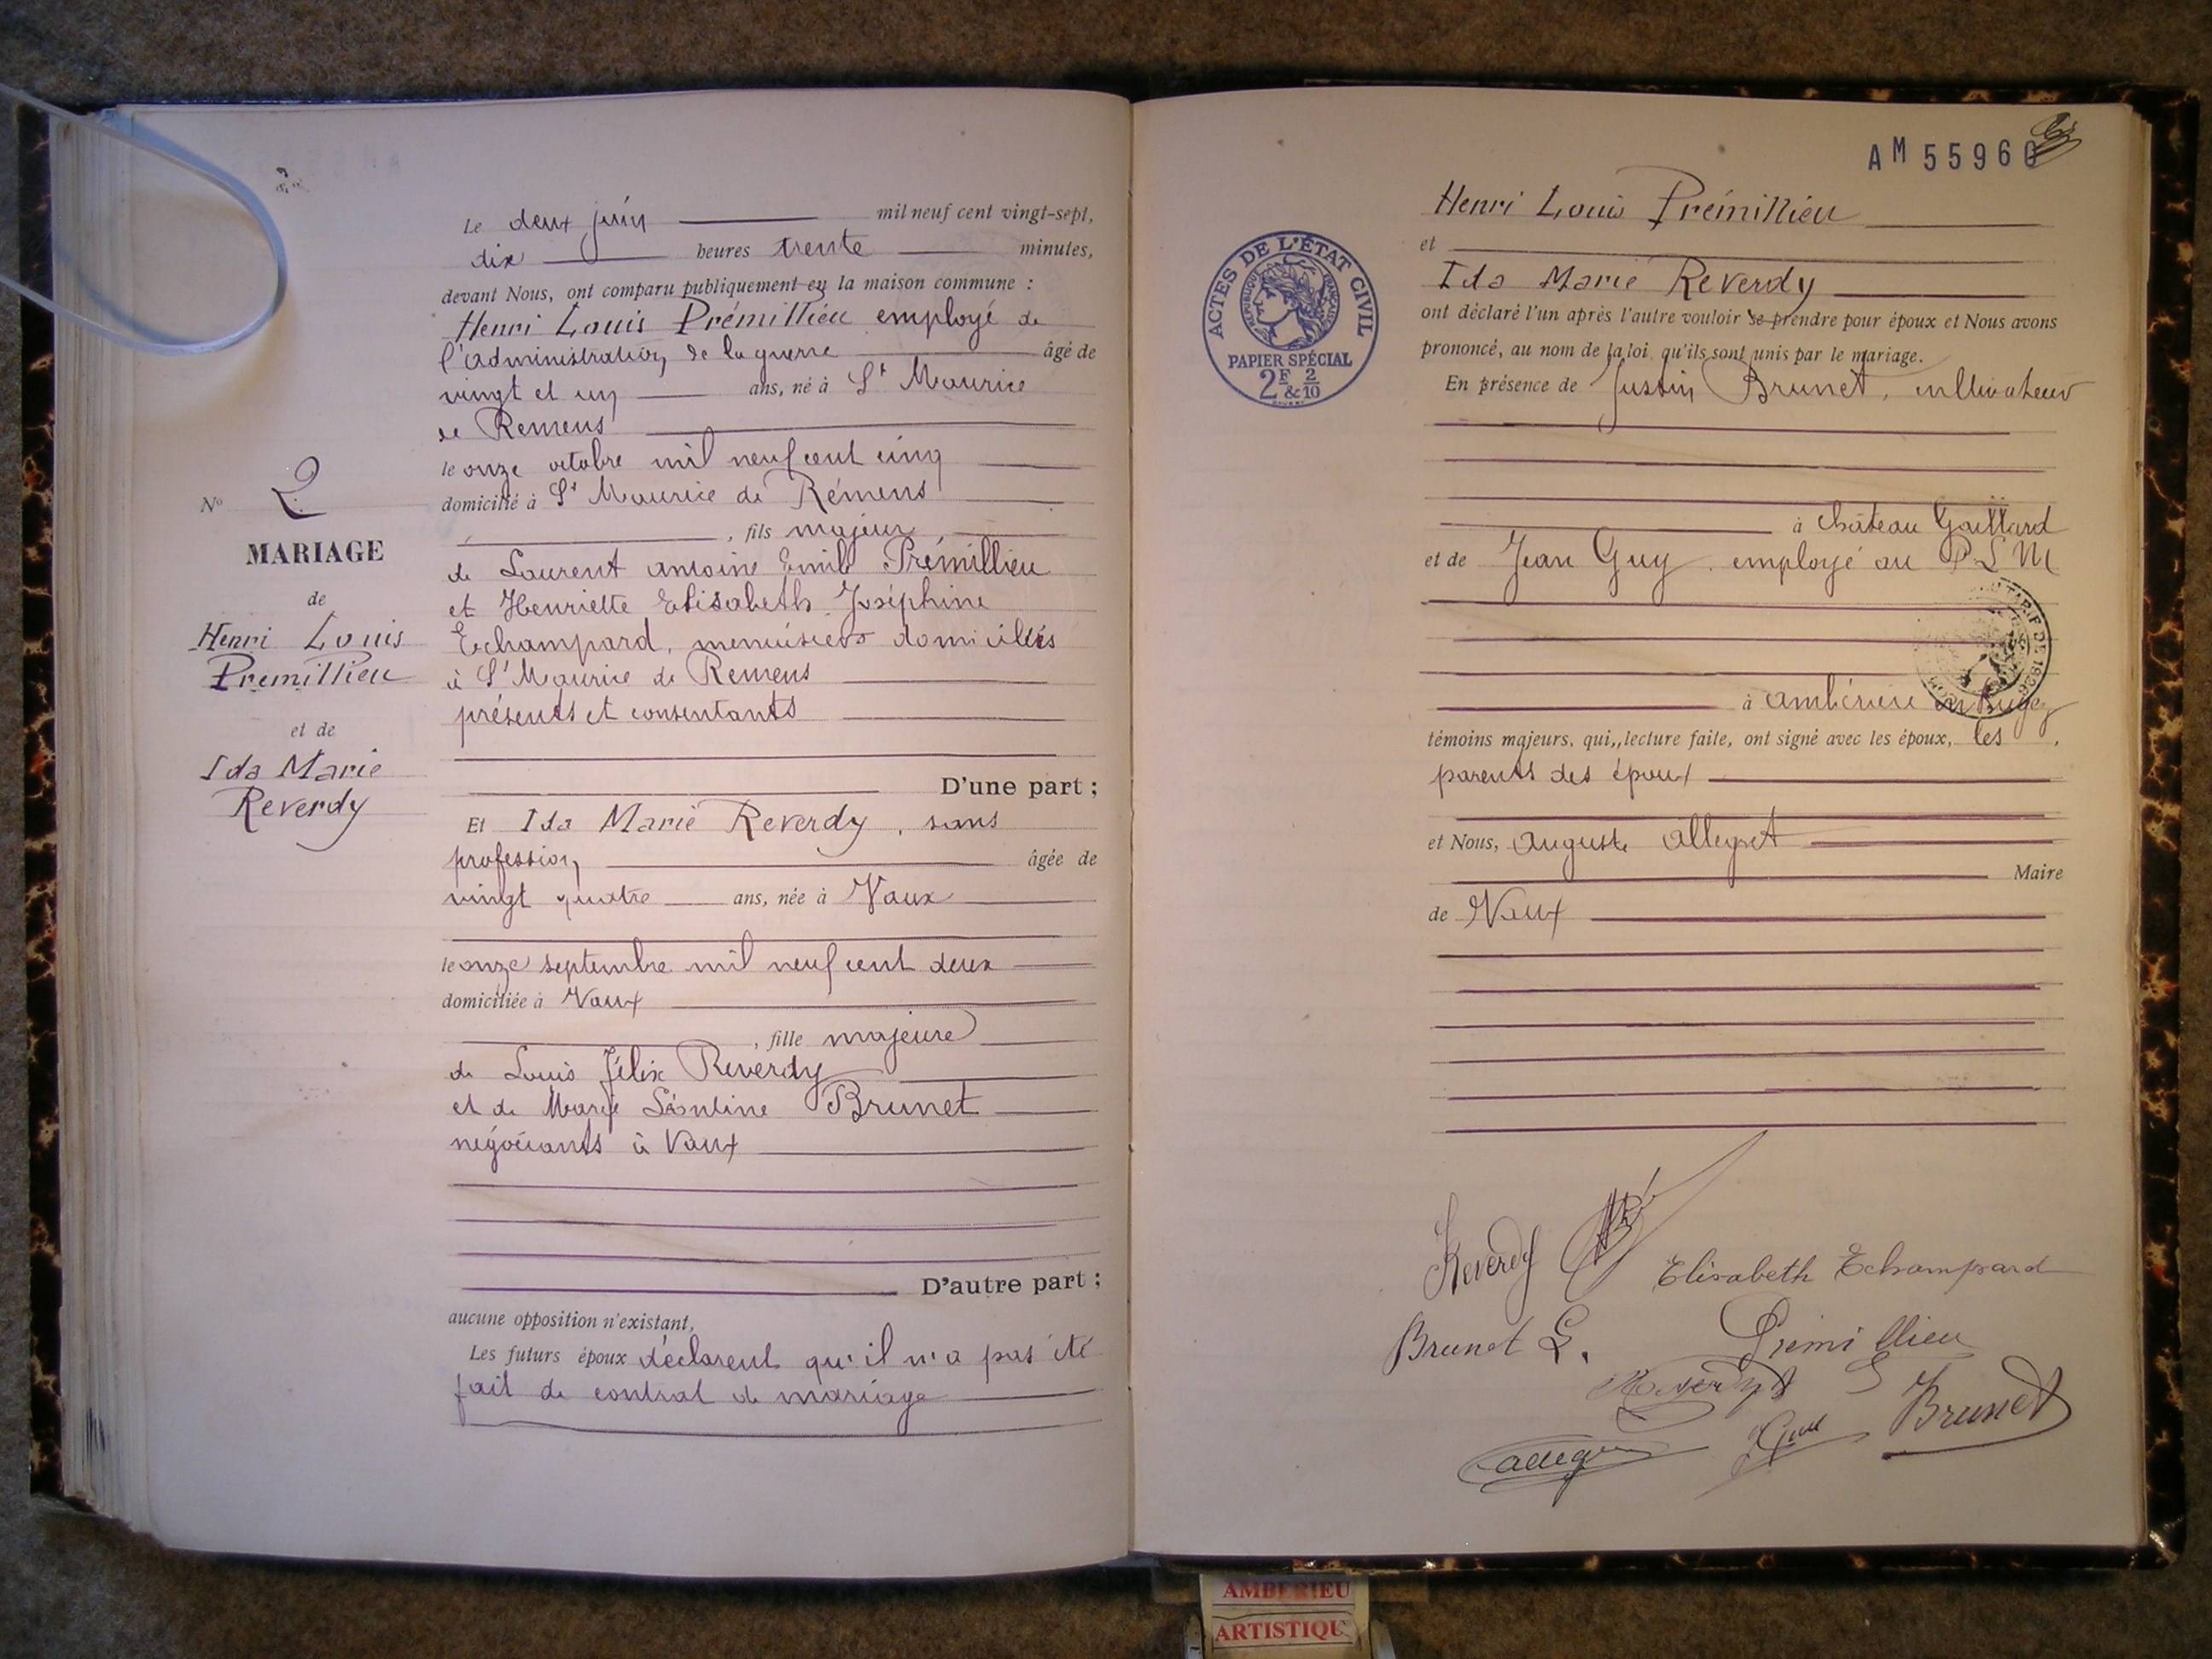 Le deux juin mil neuf cent vingt-sept,
dix heures trente minutes,
devant Nous, ont comparu publiquement en la maison commune :
Henri Louis Prémillieu employé de
l'administration de la guerre âgé de
vingt et un ans, né à St Maurice
de Remens
le onze octobre mil neuf cent cinq
domicilié à St Maurice de Rémens
, fils majeur
de Laurent antoine Emile Prémillieu
et Henriette Elisabeth Joséphine
Echampard, menuisiers domiciliés
à St Maurice de Remens
présents et consentants
D'une part ;
Et Ida Marie Reverdy, sans
profession âgée de
vingt quatre ans, née à Vaux
le onze septembre mil neuf cent deux
domiciliée à Vaux
, fille majeure
de Louis Félix Reverdy
et de Marie Léontine Brunet
négociants à Vaux
D'autre part ;
aucune opposition n'existant,
Les futurs époux déclarent qu'il n'a pas été
fait de contrat de mariage
No 2
MARIAGE
de
Henri Louis
Premillieu
et de
Ida Marie
Reverdy
AM 55960
Henri Louis Prémillieu
et
Ida Marie Reverdy
ont déclaré l'un après l'autre vouloir se prendre pour époux et Nous avons
prononcé, au nom de la loi, qu'ils sont unis par le mariage.
En présence de Justin Brunet, cultivateur
à château Gaillard
et de Jean Guy, employé au P L M
à ambérieu en Bugey
témoins majeurs, qui, lecture faite, ont signé avec les époux, les
parents des époux
et Nous, auguste allegret
Maire
de Vaux
ACTES DE L'ÉTAT CIVIL
RÉPUBLIQUE FRANÇAISE
PAPIER SPÉCIAL
2F & 2/10
TARIF DE 1926
Reverdy
Elisabeth Echampard
Brunet L.
Prémillieu
Reverdy
Brunet
AMBERIEU
ARTISTIQU